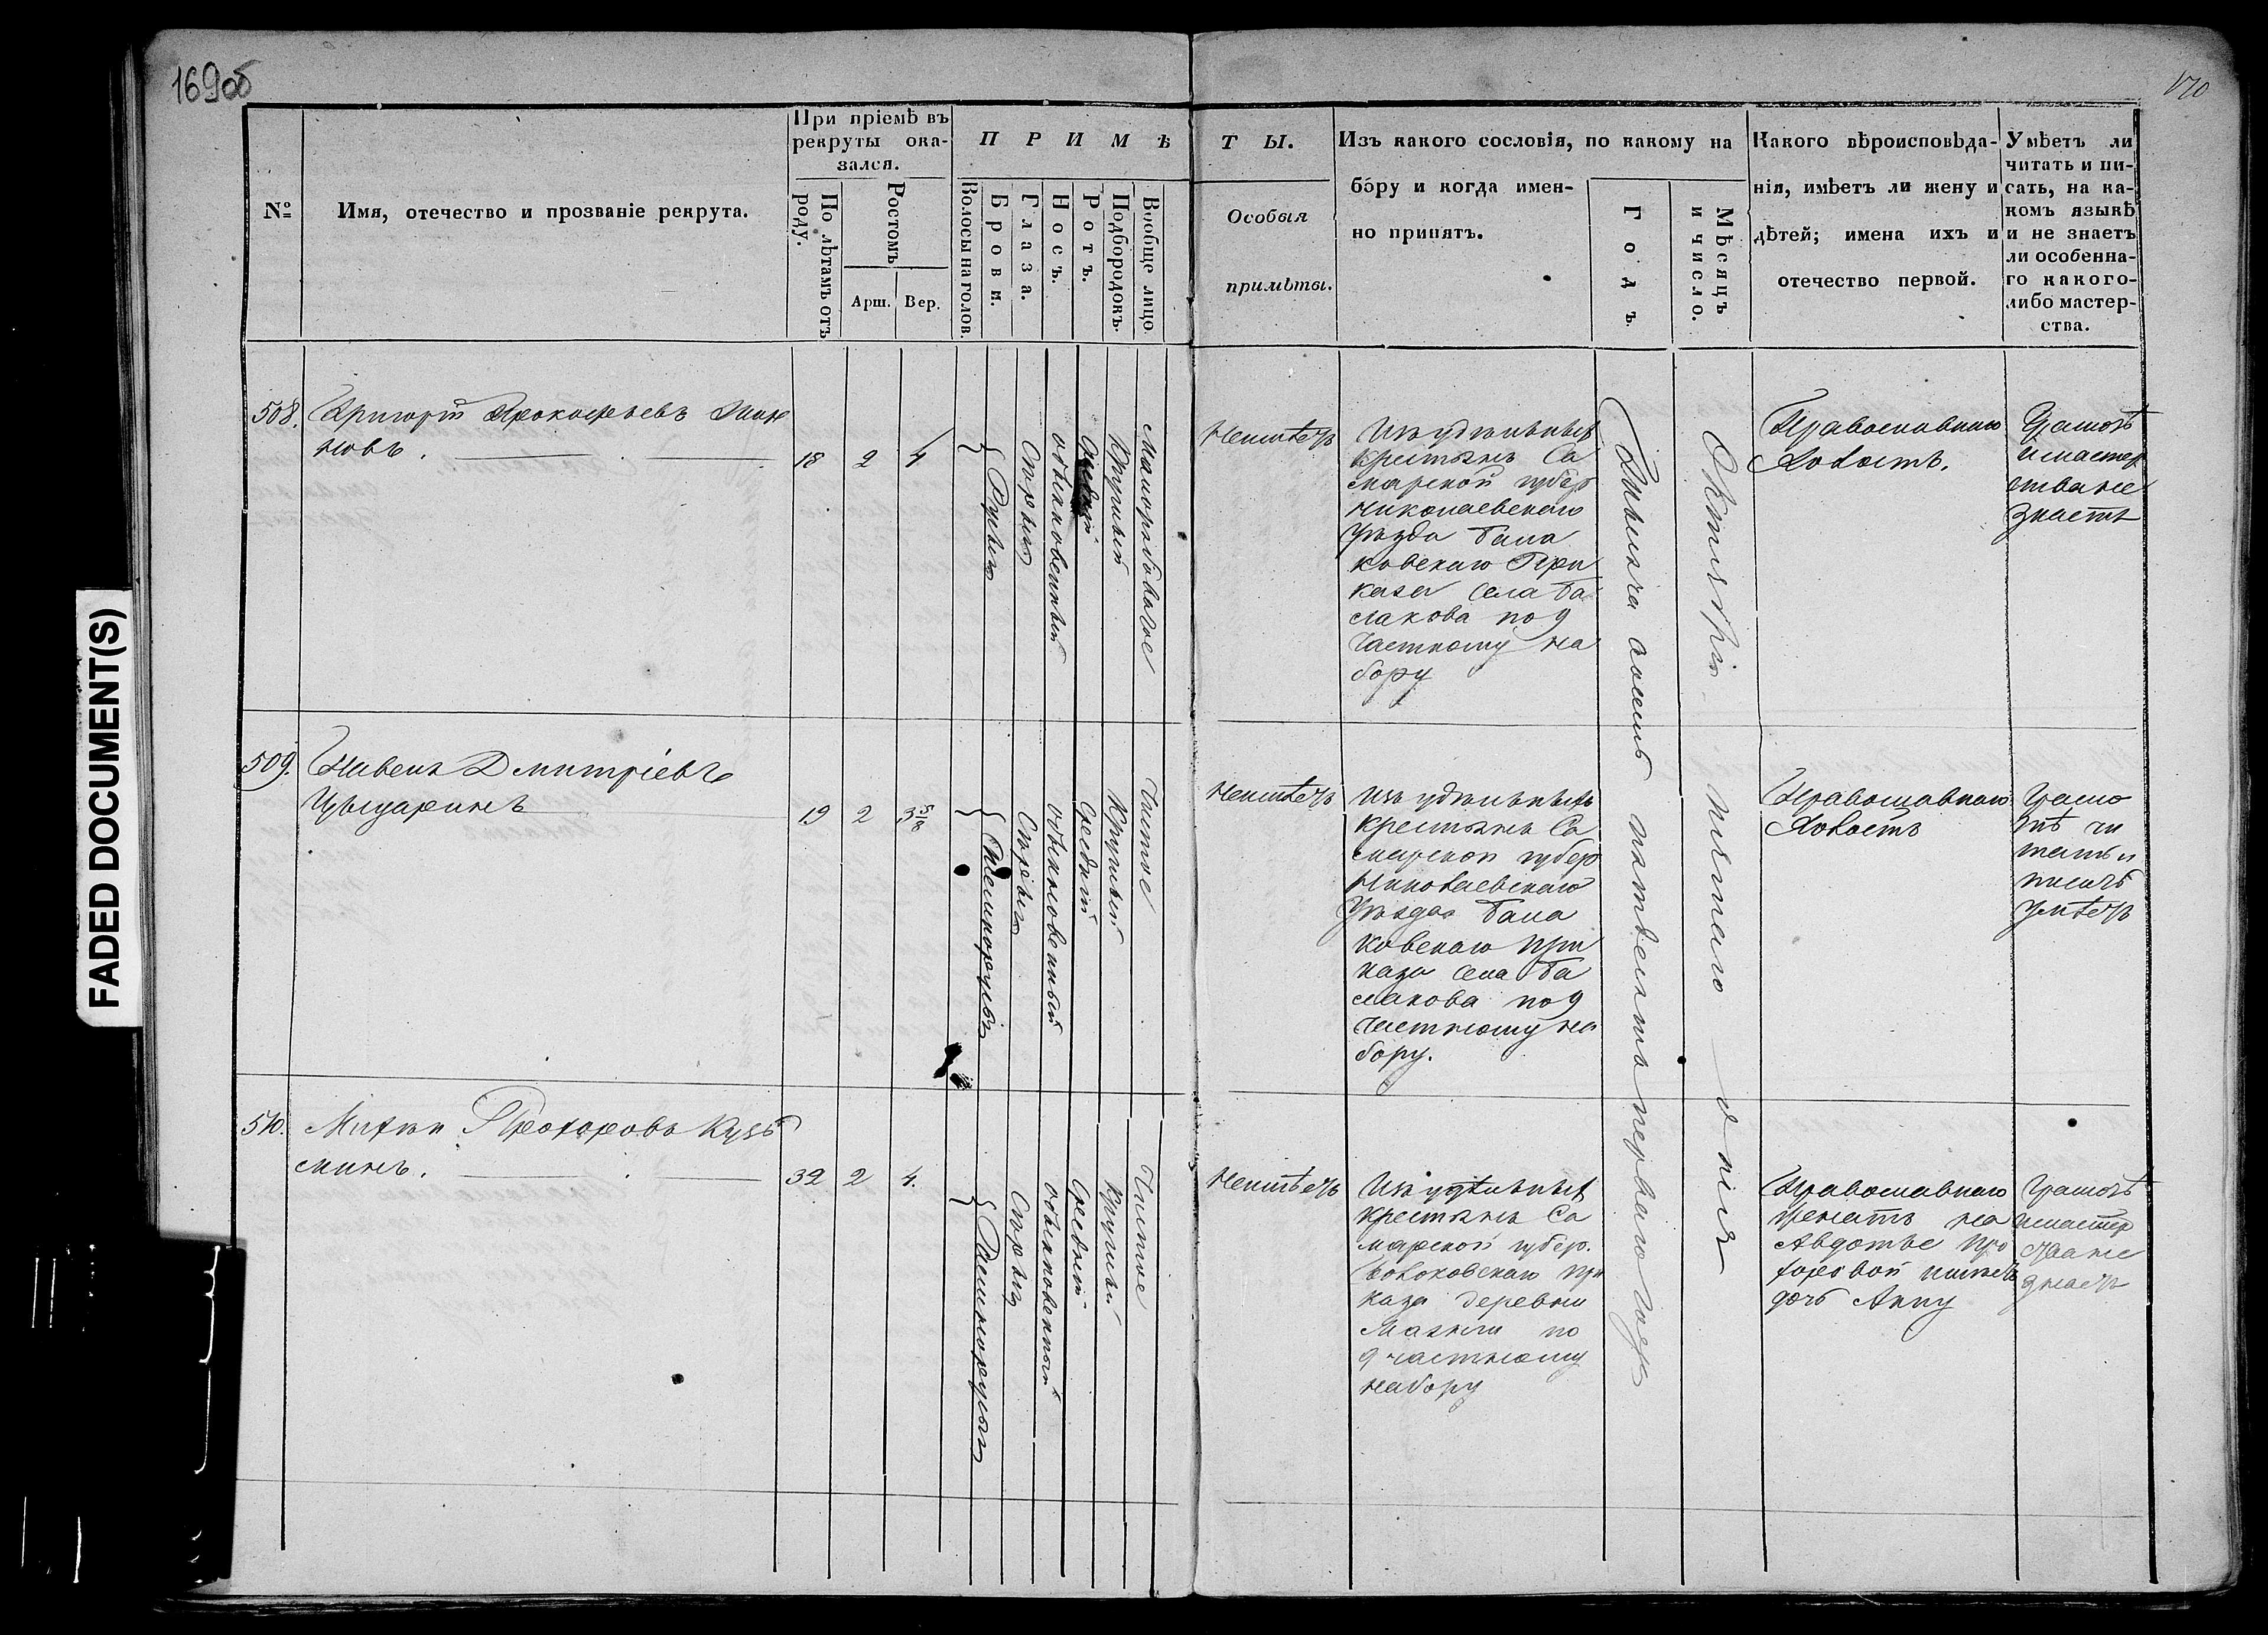 169об
170
FADED DOCUMENT(S)
№
Имя, отечество и прозваніе рекрута.
При пріемѣ въ
рекруты ока-
зался.
По лѣтамъ отъ
роду.
Ростомъ
Арш.
Вер.
П Р И М Ѣ
Волосы на голов.
Брови.
Глаза.
Носъ.
Ротъ.
Подбородокъ.
Вообще лицо.
Т Ы.
Особыя
примѣты.
Изъ какого сословія, по какому на
бору и когда имен-
но принятъ.
Годъ.
Мѣсяцъ
и число.
Какого вѣроисповѣда-
нія, имѣетъ ли жену и
дѣтей; имена ихъ и
отечество первой.
Умѣетъ ли
читать и пи-
сать, на ка-
комъ языкѣ
и не знаетъ
ли особенна-
го какого-
либо мастер-
ства.
508.
Григорій Прокофьевъ
новъ.
18
2
4
Русыя
Сѣрыя
обыкновенный
Средній
Круглый
Малорябоватое
Неимѣетъ
Изъ удѣльныхъ
крестьянъ Са
марской губер
Николаевскаго
Уѣзда Бала
ковскаго При
каза села Ба
лакова по 9
частному на
бору
Православнаго
Холостъ.
Грамотѣ
и мастер
ства не
знаетъ
509.
Павелъ Дмитріевъ
Цыцаринъ
19
2
3 5/8
Темнорусыя
Сѣрыя
обыкновенный
Средній
Круглый
Чистое
Неимѣетъ
Изъ удѣльныхъ
крестьянъ Са
марской губер
Николаевскаго
Уѣзда Бала
ковскаго При
каза села Ба
лакова по 9
частному на
бору.
Православнаго
Холостъ
Грамо
тѣ чи
тать и
писать
умѣетъ
510.
Прохоровъ Кузь
минъ.
32
2
4.
Темнорусыя
Сѣрыя
обыкновенный
Средній
Круглый
Чистое
Неимѣетъ
Изъ удѣльныхъ
крестьянъ Са
марской губер.
При
каза деревни
по
9 частному
набору
Православнаго
женатъ на
Авдотье Про
хоровой имѣетъ
дочь Анну
Грамотѣ
и мастер
ства не
знаетъ
Тысяча восемь сотъ пятьдесятъ перваго года
Октября пятаго дня